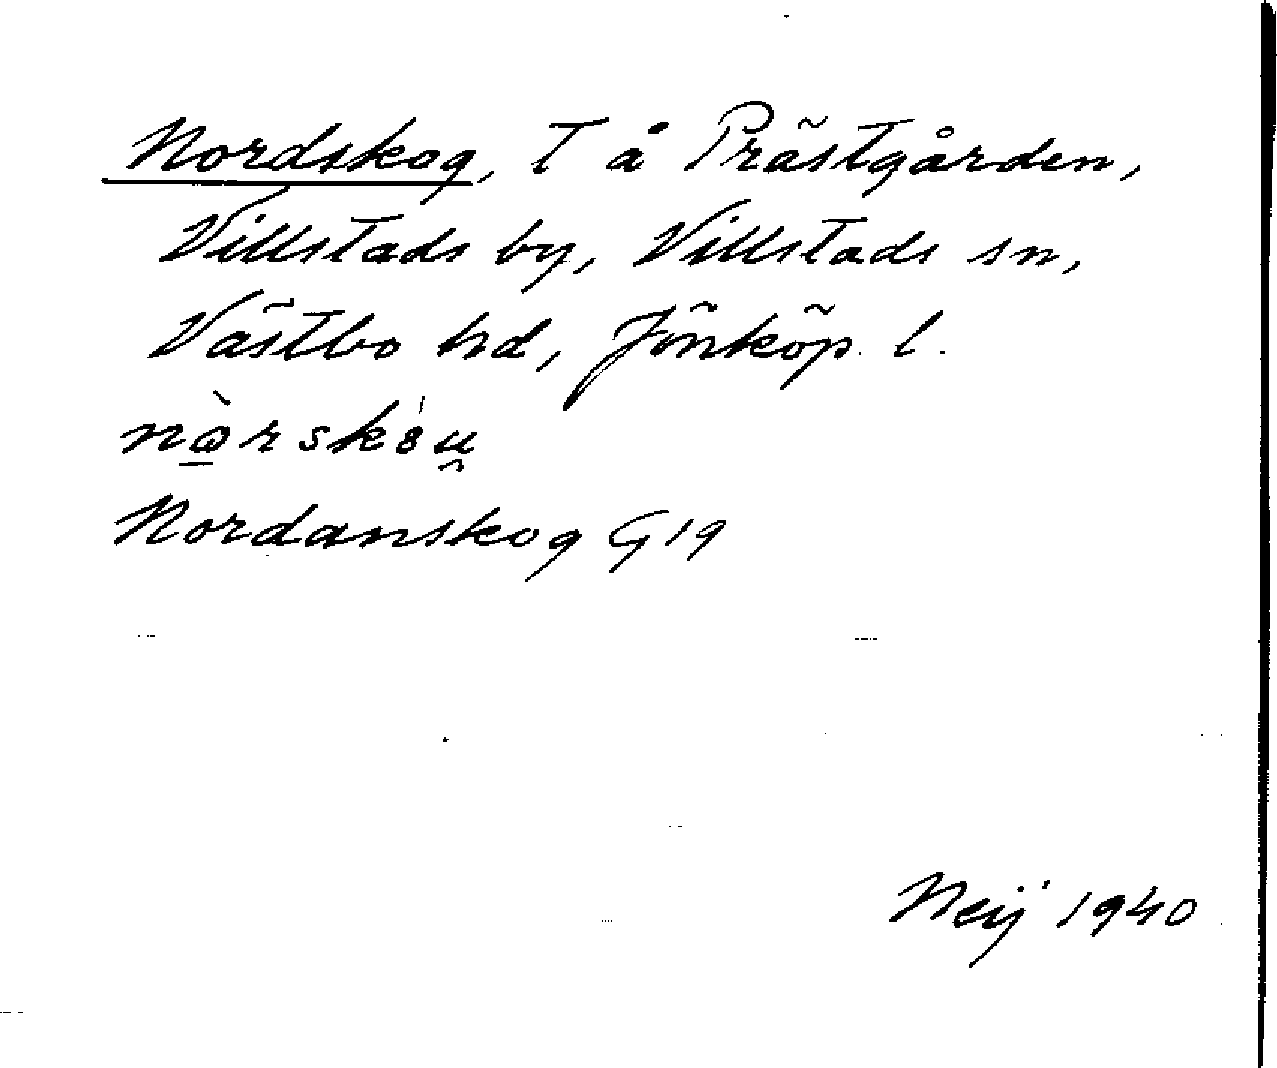 Nordskog, T å Prästgården,
Villstads by, Villstads sn,
Västbo hd, Jönköp. l.
Nordanskog G19
Neij 1940